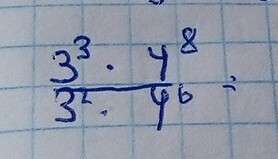 3³ · 4⁸
3² · 4⁶ =